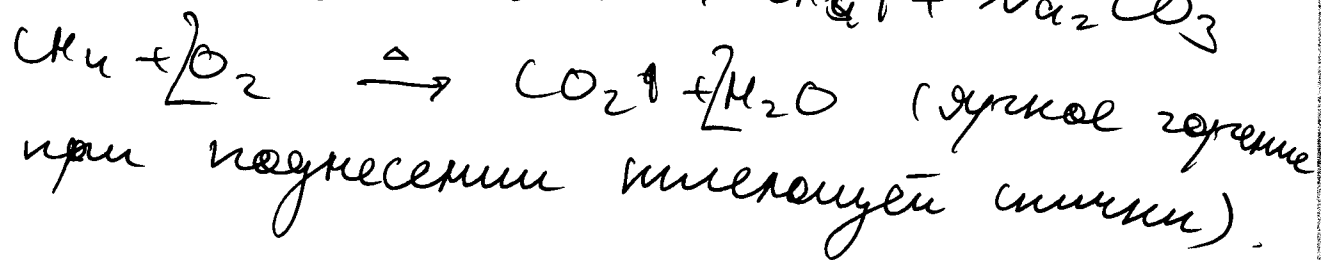 CH₄↑ + Na₂CO₃
CH₄ + 2O₂ →^Δ CO₂↑ + 2H₂O (яркое горение
при поднесении тлеющей спички).